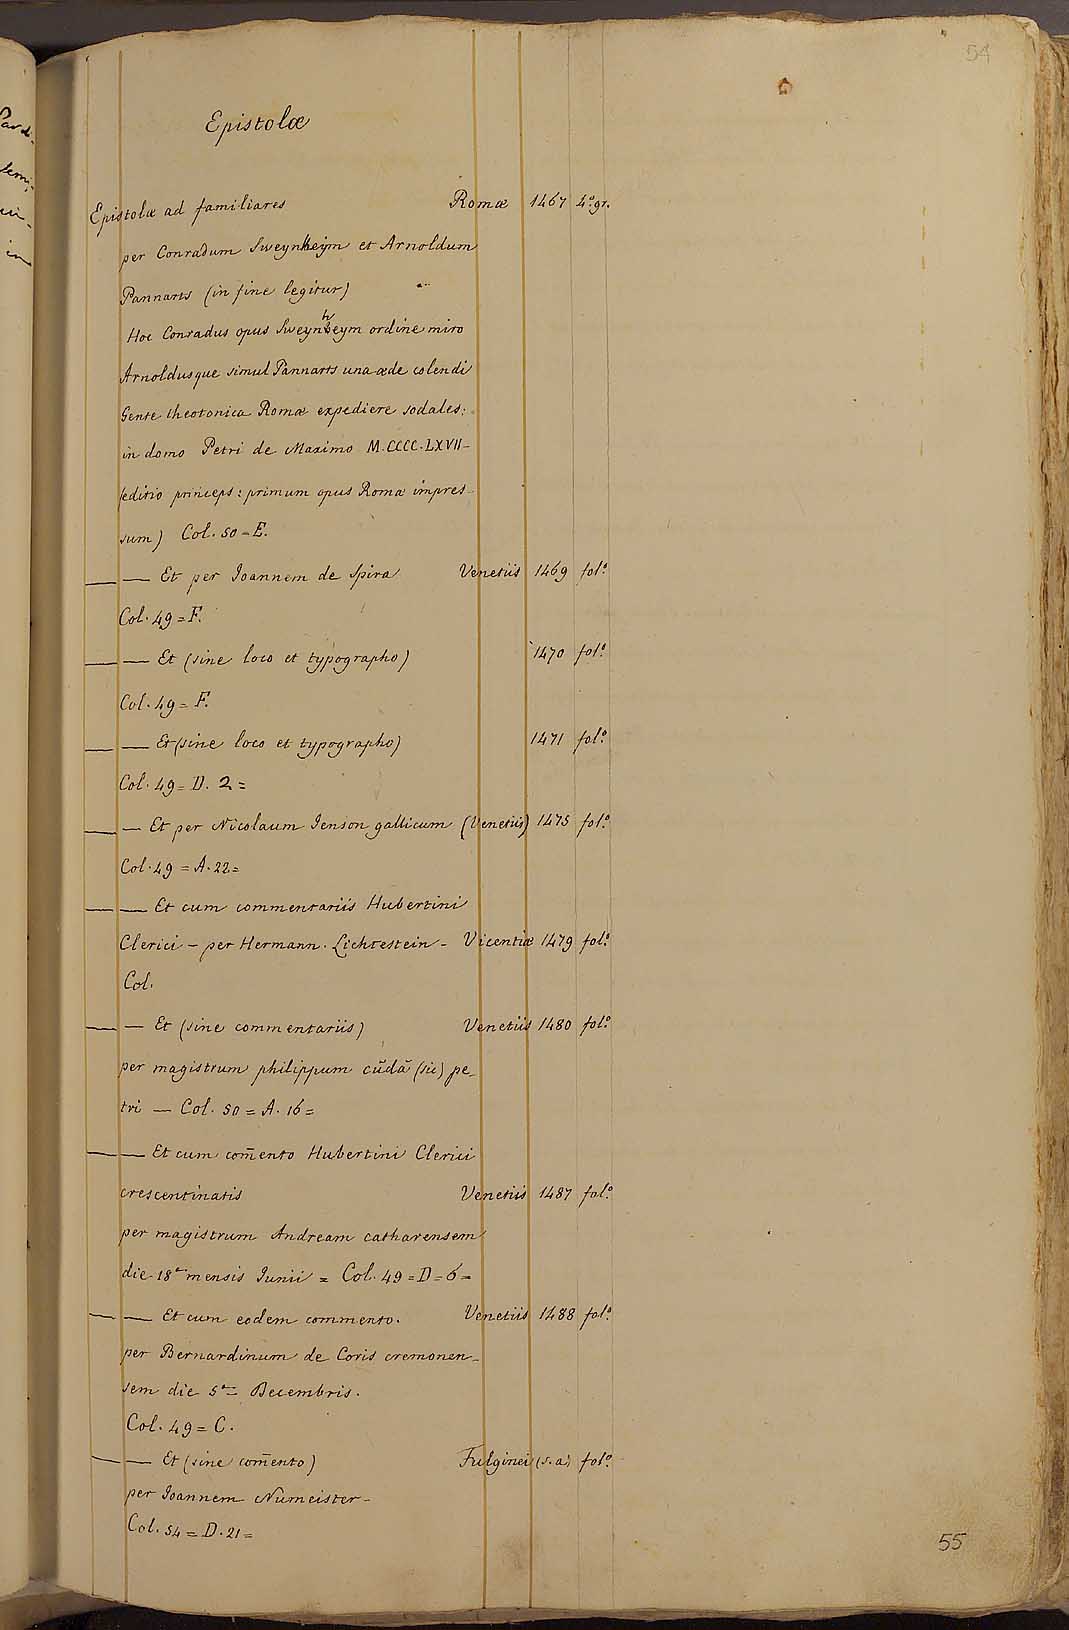 54
Epistolæ
Epistolæ ad familiares Romæ 1467 4.º gr.
per Conradum Sweynheym et Arnoldum
Pannarts (in fine legitur)
Hoc Conradus opus Sweynheym ordine miro
Arnoldusque simul Pannarts una æde colendi
Gente theotonica Romæ expediere sodales:
in domo Petri de Maximo M.CCCC.LXVII-
(editio princeps: primum opus Romæ impres-
sum) Col. 50 = E.
— — Et per Ioannem de Spira Venetiis 1469 fol.º
Col. 49 = F.
— — Et (sine loco et typographo) 1470 fol.º
Col. 49 = F.
— — Et (sine loco et typographo) 1471 fol.º
Col. 49 = D. 2 =
— — Et per Nicolaum Ienson gallicum (Venetiis) 1475 fol.º
Col. 49 = A. 22 =
— — Et cum commentariis Hubertini
Clerici - per Hermann. Lichtestein - Vicentiæ 1479 fol.º
Col.
— — Et (sine commentariis) Venetiis 1480 fol.º
per magistrum philippum cūdā (sic) pe-
tri — Col. 50 = A. 16 =
— — Et cum com̄ento Hubertini Clerici
crescentinatis Venetiis 1487 fol.º
per magistrum Andream catharensem
die 18ª mensis Iunii = Col. 49 = D = 6 =
— — Et cum eodem commento. Venetiis 1488 fol.º
per Bernardinum de Coris cremonen-
sem die 5ª = Decembris.
Col. 49 = C.
— — Et (sine com̄ento) Fulginei (s.a.) fol.º
per Ioannem Numeister -
Col. 54 = D. 21 =
55